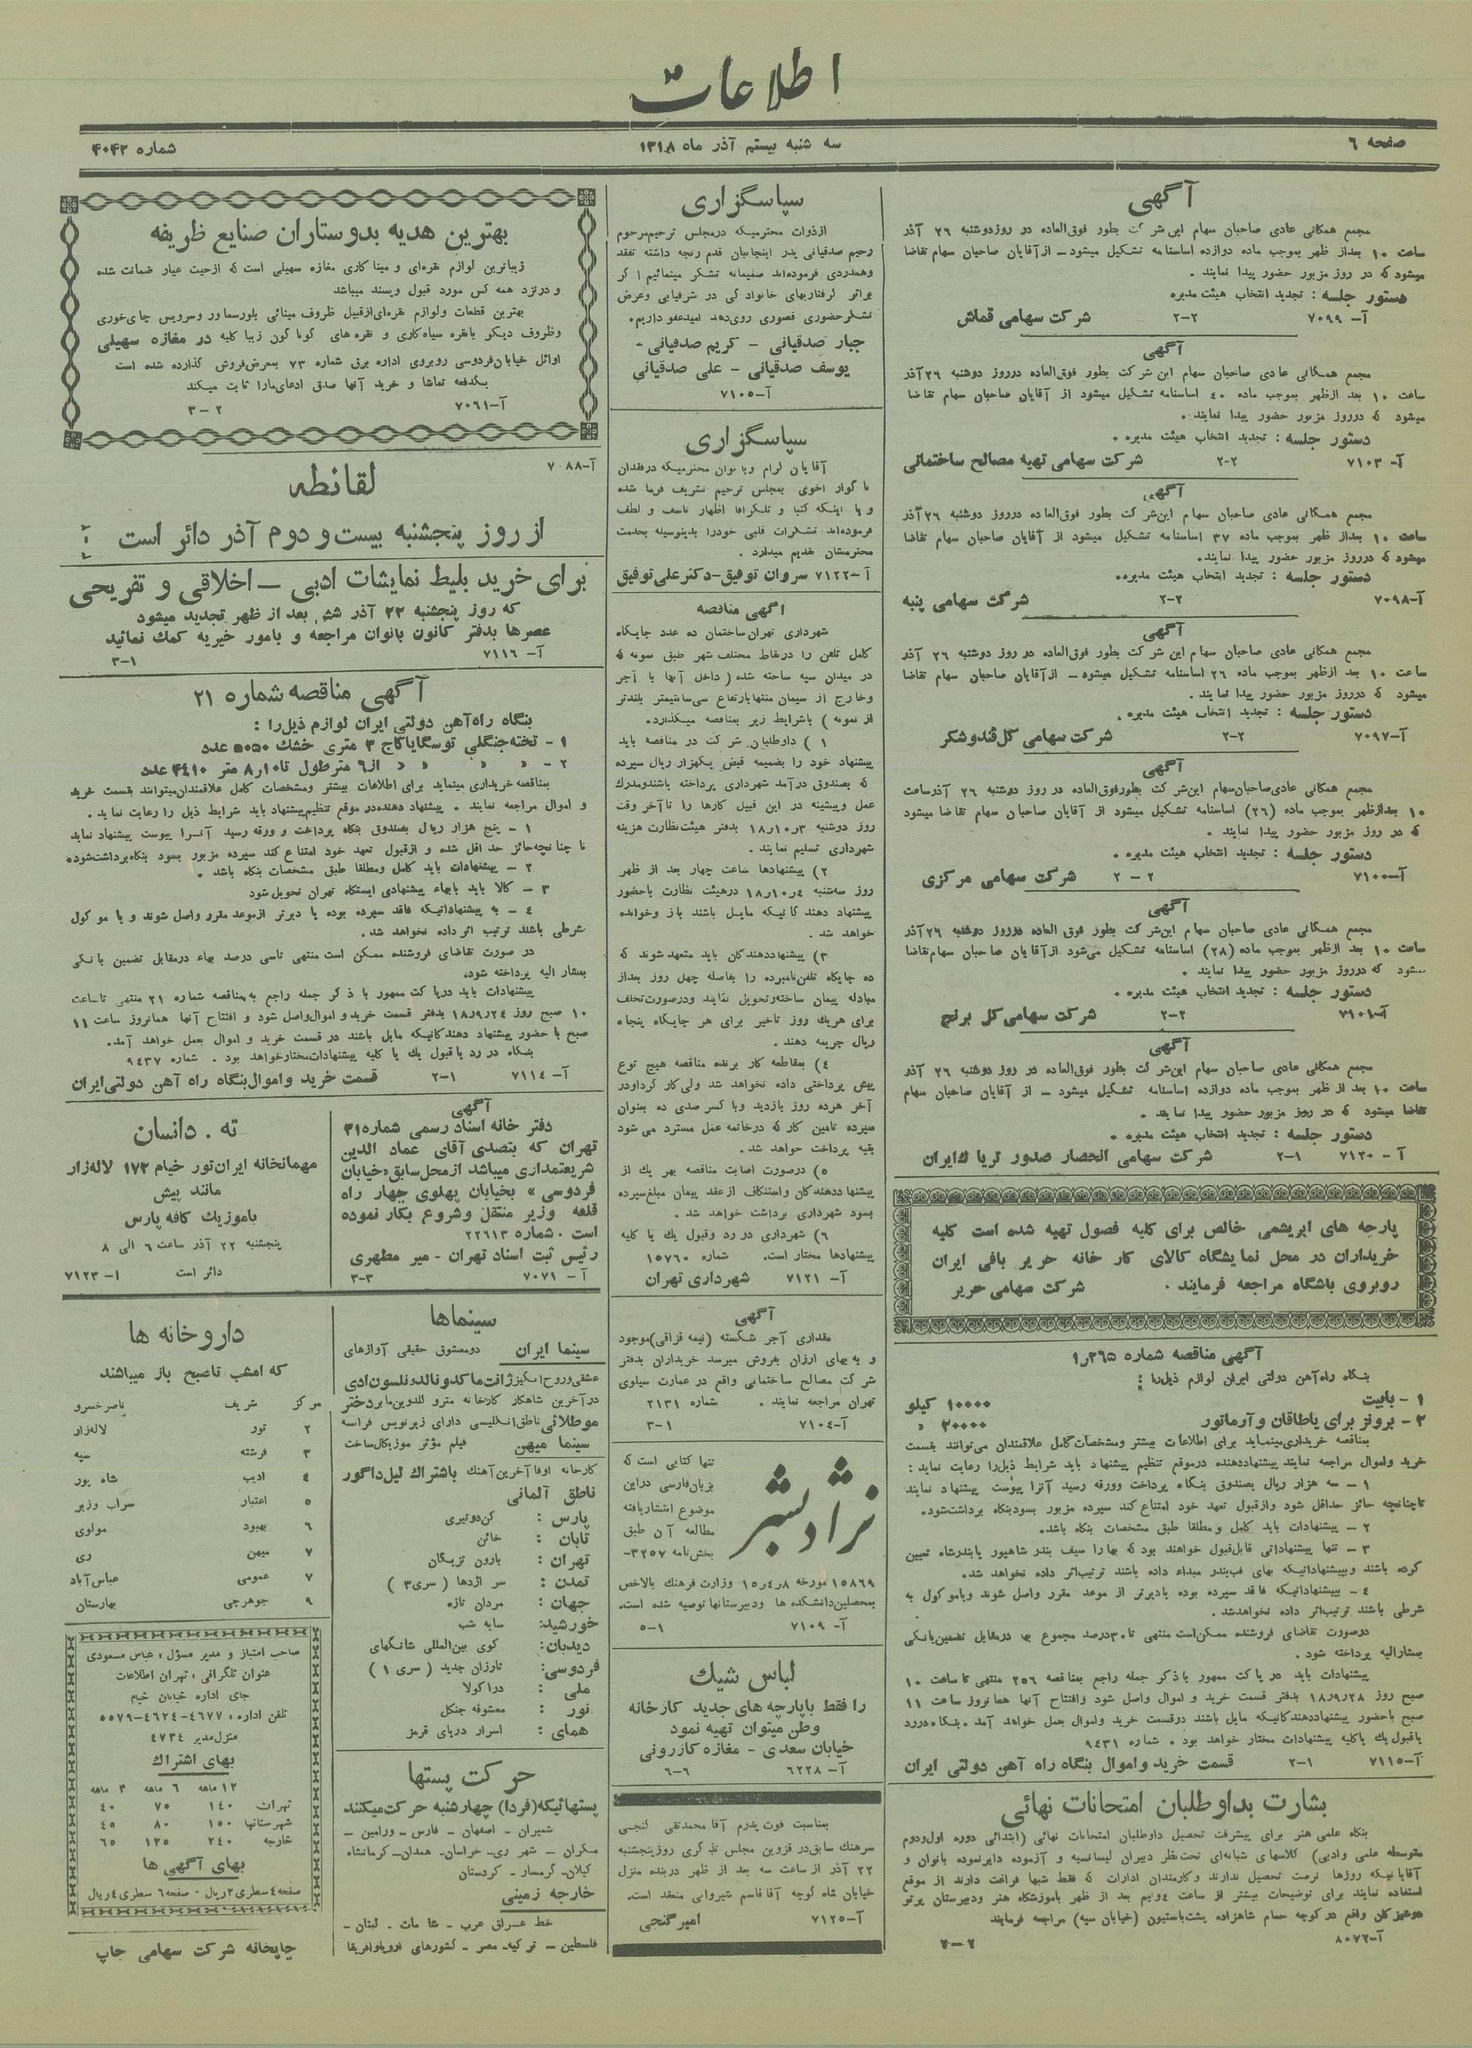 اطلاعات
صفحه ۶
سه شنبه بیستم آذر ماه ۱۳۱۸
شماره ۴۰۴۲
آگهی
مجمع همگانی عادی صاحبان سهام این شرکت بطور فوق‌العاده در روز دوشنبه ۲۶ آذر
ساعت ۱۰ بعداز ظهر بموجب ماده دوازده اساسنامه تشکیل میشود ــ ازآقایان صاحبان سهام تقاضا
میشود که در روز مزبور حضور پیدا نمایند .
دستور جلسه : تجدید انتخاب هیئت مدیره
آ- ۷۰۹۹ ۲-۲ شرکت سهامی قماش
آگهی
مجمع همگانی عادی صاحبان سهام این شرکت بطور فوق‌العاده درروز دوشنبه ۲۶ آذر
ساعت ۱۰ بعد ازظهر بموجب ماده ۴۰ اساسنامه تشکیل میشود از آقایان صاحبان سهام تقاضا
میشود که درروز مزبور حضور پیدا نمایند .
دستور جلسه : تجدید انتخاب هیئت مدیره .
آ- ۷۱۰۳ ۲-۲ شرکت سهامی تهیه مصالح ساختمانی
آگهی
مجمع همگانی عادی صاحبان سهام این‌شرکت بطور فوق‌العاده درروز دوشنبه ۲۶ آذر
ساعت ۱۰ بعداز ظهر بموجب ماده ۳۷ اساسنامه تشکیل میشود از آقایان صاحبان سهام تقاضا
میشود که درروز مزبور حضور پیدا نمایند.
دستور جلسه : تجدید انتخاب هیئت مدیره.
آ-۷۰۹۸ ۲-۲ شرکت سهامی پنبه
آگهی
مجمع همگانی عادی صاحبان سهام این شرکت بطور فوق‌العاده در روز دوشنبه ۲۶ آذر
ساعت ۱۰ بعد ازظهر بموجب ماده ۲۶ اساسنامه تشکیل میشود ــ ازآقایان صاحبان سهام تقاضا
میشود که درروز مزبور حضور پیدا نمایند .
دستور جلسه : تجدید انتخاب هیئت مدیره .
آ-۷۰۹۷ ۲-۲ شرکت سهامی کل‌قندوشکر
آگهی
مجمع همگانی عادی‌صاحبان‌سهام این‌شرکت بطورفوق‌العاده در روز دوشنبه ۲۶ آذرساعت
۱۰ بعدازظهر بموجب ماده (۲۶) اساسنامه تشکیل میشود از آقایان صاحبان سهام تقاضا میشود
که در روز مزبور حضور پیدا نمایند .
دستور جلسه : تجدید انتخاب هیئت مدیره .
آ-۷۱۰۰ ۲-۲ شرکت سهامی مرکزی
آگهی
مجمع همگانی عادی صاحبان سهام این‌شرکت بطور فوق العاده درروز دوشنبه ۲۶ آذر
ساعت ۱۰ بعد ازظهر بموجب ماده (۲۸) اساسنامه تشکیل می‌شود ازآقایان صاحبان سهام‌تقاضا
میشود که درروز مزبور حضور پیدا نمایند .
دستور جلسه : تجدید انتخاب هیئت مدیره .
آ-۷۱۰۱ ۲-۲ شرکت سهامی‌کل برنج
آگهی
مجمع همگانی عادی صاحبان سهام این‌شرکت بطور فوق‌العاده در روز دوشنبه ۲۶ آذر
ساعت ۱۰ بعد از ظهر بموجب ماده دوازده اساسنامه تشکیل میشود ــ از آقایان صاحبان سهام
تقاضا میشود که در روز مزبور حضور پیدا نمایند .
دستور جلسه : تجدید انتخاب هیئت مدیره .
آ - ۷۱۲۰ ۲-۱ شرکت سهامی انحصار صدور تریاک‌ایران
پارچه های ابریشمی خالص برای کلیه فصول تهیه شده است کلیه
خریداران در محل نمایشگاه کالای کار خانه حریر بافی ایران
روبروی باشگاه مراجعه فرمایند .
شرکت سهامی حریر
آگهی مناقصه شماره
بنگاه راه‌آهن دولتی ایران لوازم ذیل‌را :
۱ - بابیت ۱۰۰۰۰ کیلو
۲- برونز برای یاطاقان و آرماتور ۲۰۰۰۰ «
بمناقصه خریداری‌مینماید برای اطلاعات بیشتر ومشخصات‌کامل علاقمندان می‌توانند بقسمت
خرید واموال مراجعه نمایند پیشنهاددهنده درموقع تنظیم پیشنهاد باید شرایط ذیل‌را رعایت نماید :
۱ - سه هزار ریال بصندوق بنگاه پرداخت وورقه رسید آنرا پیوست پیشنهاد نمایند
تاچنانچه حائز حداقل شود وازقبول تعهد خود امتناع کند سپرده مزبور بسودبنگاه برداشت‌شود.
۲ - پیشنهادات باید کامل و مطلقا طبق مشخصات بنگاه باشد.
۳ - تنها پیشنهاداتی قابل‌قبول خواهند بود که بهارا سیف بندر شاهپور یابندرشاه تعیین
کرده باشند وبپیشنهاداتیکه بهای فب‌بندر مبداء داده باشند ترتیب‌اثر داده نخواهد شد.
۴ - بپیشنهاداتیکه فاقد سپرده بوده یادیرتر از موعد مقرر واصل شوند ویاموکول به
شرطی باشند ترتیب‌اثر داده نخواهدشد .
درصورت تقاضای فروشنده ممکن‌است منتهی تا۳۰درصد مجموع بها درمقابل تضمین‌بانکی
بمشارالیه پرداخته شود .
پیشنهادات باید در پاکت ممهور باذکر جمله راجع بمناقصه ۲۵۶ منتهی تا ساعت ۱۰
صبح روز ۱۸ر۹ر۲۸ بدفتر قسمت خرید و اموال واصل شود وافتتاح آنها همانروز ساعت ۱۱
صبح باحضور پیشنهاددهندکانیکه مایل باشند درقسمت خرید واموال بعمل خواهد آمد . بنگاه دررد
یاقبول یک یاکلیه پیشنهادات مختار خواهد بود . شماره ۹۴۳۱
آ-۷۱۱۵ ۲-۱ قسمت خرید واموال بنگاه راه آهن دولتی ایران
بشارت بداوطلبان امتحانات نهائی
بنگاه علمی هنر برای پیشرفت تحصیل داوطلبان امتحانات نهائی (ابتدائی دوره اول‌ودوم
متوسطه علمی وادبی) کلاسهای شبانه‌ای تحت‌نظر دبیران لیسانسیه و آزموده دایرنموده بانوان و
آقایانیکه روزها فرصت تحصیل ندارند وکارمندان ادارات که فقط شبها فراغت دارند از موقع
استفاده نمایند برای توضیحات بیشتر از ساعت ۴ونیم بعد از ظهر باموزشگاه هنر ودبیرستان پرتو
دوشیزکان واقع درکوچه حمام شاهزاده پشت‌باستیون (خیابان سپه) مراجعه فرمایند
آ-۸۰۷۲ ۴-۲
سپاسگزاری
ازذوات محترمیکه درمجلس ترحیم‌مرحوم
رحیم صدقیانی پدر اینجانبان قدم رنجه داشته تفقد
وهمدردی فرموده‌اند صمیمانه تشکر مینمائیم اگر
براثر گرفتاریهای خانوادگی در شرفیابی وعرض
تشکرحضوری قصوری روی‌دهد امیدعفو داریم.
جبار صدقیانی - کریم صدقیانی -
یوسف صدقیانی - علی صدقیانی
آ-۷۱۰۵
سپاسگزاری
آقایان گرام وبانوان محترمیکه درفقدان
ناگوار اخوی بمجلس ترحیم تشریف فرما شده
و یا اینکه کتبا و تلگرافا اظهار تاسف و لطف
فرموده‌اند تشکرات قلبی خودرا بدینوسیله بخدمت
محترمشان تقدیم میدارد .
آ-۷۱۲۲ سروان توفیق-دکترعلی‌توفیق
آگهی مناقصه
شهرداری تهران‌ساختمان ده عدد جایگاه
کامل تلفن را درنقاط مختلف شهر طبق نمونه که
در میدان سپه ساخته شده ( داخل آنها با آجر
وخارج از سیمان منتهابارتفاع سی‌سانتیمتر بلندتر
از نمونه ) باشرایط زیر بمناقصه میگذارد.
۱ ) داوطلبان شرکت در مناقصه باید
پیشنهاد خود را بضمیمه قبض یکهزار ریال سپرده
که بصندوق درآمد شهرداری پرداخته باشندومدرک
عمل وپیشینه در این قبیل کارها را تاآخر وقت
روز دوشنبه ۱۸ر۱۰ر۳ بدفتر هیئت‌نظارت هزینه
شهرداری تسلیم نمایند .
۲) پیشنهادها ساعت چهار بعد از ظهر
روز سه‌شنبه ۱۸ر۱۰ر۴ درهیئت نظارت باحضور
پیشنهاد دهندکانیکه مایل باشند باز وخوانده
خواهد شد .
۳) پیشنهاددهندکان باید متعهد شوند که
ده جایکاه تلفن‌نامبرده را بفاصله چهل روز بعداز
مبادله پیمان ساخته‌وتحویل نمایند ودرصورت‌تخلف
برای هریک روز تاخیر برای هر جایگاه پنجاه
ریال جریمه دهند.
۴) بمقاطعه کار برنده مناقصه هیچ نوع
پیش پرداختی داده نخواهد شد ولی‌کار کرداودر
آخر هرده روز بازدید وباکسر صدی ده بعنوان
سپرده تامین کار که درخاتمه عمل مسترد می شود
بقیه پرداخت خواهد شد.
۵) درصورت اصابت مناقصه بهر یک از
پیشنهاددهندکان واستنکاف ازعقد پیمان مبلغ‌سپرده
بسود شهرداری برداشت خواهد شد .
۶) شهرداری در رد وقبول یک یا کلیه
پیشنهادها مختار است. شماره ۱۵۷۶۰
آ- ۷۱۲۱ شهرداری تهران
آگهی
مقداری آجر شکسته (نیمه قزاقی)موجود
و به‌بهای ارزان بفروش میرسد خریداران بدفتر
شرکت مصالح ساختمانی واقع در عمارت سیلوی
تهران مراجعه نمایند . شماره ۲۱۳۱
آ-۷۱۰۴ ۳-۱
نژاد بشر
تنها کتابی است که
بزبان‌فارسی دراین
موضوع انتشاریافته
مطالعه آن طبق
بخش‌نامه ۳۲۵۷-
۱۵۸۶۹ مورخه ۱۵ر۴ر۸ وزارت فرهنگ بالاخص
بمحصلین‌دانشکده ها ودبیرستانها توصیه شده است.
آ- ۷۱۰۹ ۵-۱
لباس شیک
را فقط باپارچه های جدید کارخانه
وطن میتوان تهیه نمود
خیابان سعدی - مغازه کازرونی
آ- ۶۲۲۸ ۶-۶
بمناسبت فوت پدرم آقا محمدتقی گنجی
سرهنگ سابق‌در قزوین مجلس تذکری روزپنجشنبه
۲۲ آذر از ساعت سه بعد از ظهر دربنده منزل
خیابان شاه کوچه آقاقاسم شیروانی منعقد است.
آ-۷۱۲۵ امیرگنجی
بهترین هدیه بدوستاران صنایع ظریفه
زیباترین لوازم نقره‌ای و میناکاری مغازه سهیلی است که ازحیث عیار ضمانت شده
و درنزد همه کس مورد قبول وپسند میباشد
بهترین قطعات ولوازم نقره‌ای‌ازقبیل ظروف مینائی بلورسماور وسرویس چای‌خوری
وظروف دیگر بانقره سیاه‌کاری و نقره های گوناگون زیبا کلیه در مغازه سهیلی
اوائل خیابان‌فردوسی روبروی اداره برق شماره ۷۳ بمعرض‌فروش گذارده شده است
یکدفعه تماشا و خرید آنها صدق ادعای‌مارا ثابت میکند
آ-۷۰۶۱ ۳-۲
آ-۷۰۸۸
لقانطه
از روز پنجشنبه بیست و دوم آذر دائر است
برای خرید بلیط نمایشات ادبی - اخلاقی و تفریحی
که روز پنجشنبه ۲۲ آذر شش بعد از ظهر تجدید میشود
عصرها بدفتر کانون بانوان مراجعه و بامور خیریه کمک نمائید
آ- ۷۱۱۶ ۳-۱
آگهی مناقصه شماره ۲۱
بنگاه راه‌آهن دولتی ایران لوازم ذیل‌را :
۱ - تخته‌جنگلی توسکایاکاج ۳ متری خشک ۵۰۵۰ عدد
۲ - « « « از۶ مترطول تا۸ر۱۰ متر ۴۴۱۰ عدد
بمناقصه خریداری مینماید برای اطلاعات بیشتر ومشخصات کامل علاقمندان‌میتوانند بقسمت خرید
و اموال مراجعه نمایند . پیشنهاد دهنده‌در موقع تنظیم‌پیشنهاد باید شرایط ذیل را رعایت نماید .
۱ - پنج هزار ریال بصندوق بنگاه پرداخت و ورقه رسید آنرا پیوست پیشنهاد نماید
تا چنانچه‌حائز حداقل شده و ازقبول تعهد خود امتناع کند سپرده مزبور بسود بنگاه‌برداشت‌شود.
۲ - پیشنهادات باید کامل ومطلقا طبق مشخصات بنگاه باشد .
۳ - کالا باید بابهاء پیشنهادی ایستگاه تهران تحویل‌شود
۴ - به پیشنهاداتیکه فاقد سپرده بوده یا دیرتر ازموعد مقرر واصل شوند و یا موکول
بشرطی باشند ترتیب اثرداده نخواهد شد .
در صورت تقاضای فروشنده ممکن است منتهی تاسی درصد بهاء درمقابل تضمین بانکی
بمشار الیه پرداخته شود.
پیشنهادات باید درپاکت ممهور با ذکر جمله راجع به‌مناقصه شماره ۲۱ منتهی تاساعت
۱۰ صبح روز ۱۸ر۹ر۲۴ بدفتر قسمت خریدواموال‌واصل شود و افتتاح آنها همانروز ساعت ۱۱
صبح با حضور پیشنهاد دهندکانیکه مایل باشند در قسمت خرید و اموال بعمل خواهد آمد.
بنگاه در رد یاقبول یک یا کلیه پیشنهادات‌مختارخواهد بود . شماره ۹۴۳۷
آ- ۷۱۱۴ ۲-۱ قسمت خرید واموال‌بنگاه راه آهن دولتی‌ایران
آگهی
دفتر خانه اسناد رسمی شماره۳۱
تهران که بتصدی آقای عماد الدین
شریعتمداری میباشد ازمحل‌سابق«خیابان
فردوسی » بخیابان پهلوی چهار راه
قلعه وزیر منتقل وشروع بکار نموده
است . شماره ۲۲۶۱۳
رئیس ثبت اسناد تهران - میر مطهری
آ- ۷۰۷۱ ۳-۳
ته . دانسان
مهمانخانه ایران‌تور خیام ۱۷۳ لاله‌زار
مانند پیش
باموزیک کافه پارس
پنجشنبه ۲۲ آذر ساعت ۶ الی ۸
دائر است ا- ۷۱۲۳
سینماها
سینما ایران دومعشوق حقیقی آوازهای
عشقی‌وروح‌انگیز ژانت‌ماکدونالدونلسون‌ادی
درآخرین شاهکار کارخانه مترو گلدوین‌مایر دختر
موطلائی ناطق‌انگلیسی دارای زیرنویس فرانسه
سینما میهن فیلم مؤثر موزیکال‌ساخت
کارخانه اوفا آخرین‌آهنگ باشتراک لیل‌داگور
ناطق آلمانی
پارس : کن‌دوتیری
تابان : خائن
تهران : بارون تزیگان
تمدن : سر اژدها ( سری۳ )
جهان: مردان تازه
خورشید: سایه شب
دیدبان: کوی بین‌المللی شانگهای
فردوسی: تارزان جدید ( سری ۱ )
ملی : دراکولا
نور : معشوقه جنگل
همای : اسرار دریای قرمز
حرکت پستها
پستهائیکه(فردا) چهارشنبه حرکت‌میکنند
شمیران - اصفهان - فارس - ورامین -
مکران - شهر ری- خراسان- همدان- کرمانشاه
گیلان- گرمسار - کردستان
خارجه زمینی
خط عراق عرب - شامات - لبنان -
فلسطین - ترکیه- مصر - کشورهای اروپاوافریقا
داروخانه ها
که امشب تاصبح باز میباشند
مرکز شریف ناصرخسرو
۲ تور لاله‌زار
۳ فرشته سپه
۴ ادیب شاه پور
۵ اعتبار سراب وزیر
۶ بهبود مولوی
۷ میهن ری
۷ عمومی عباس‌آباد
۹ جوهرچی بهارستان
صاحب امتیاز و مدیر مسؤل : عباس مسعودی
عنوان تلگرافی : تهران اطلاعات
جای اداره خیابان خیام
تلفن اداره : ۴۶۷۷-۴۶۲۴-۵۵۷۹
منزل‌مدیر ۴۷۳۴
بهای اشتراک
۱۲ماهه ۶ ماهه ۳ ماهه
تهران ۱۴۰ ۷۵ ۴۰
شهرستانها ۱۵۰ ۸۰ ۴۵
خارجه ۲۴۰ ۱۲۵ ۶۵
بهای آگهی ها
صفحه۴سطری۲ریال - صفحه۶ سطری۴ریال
چاپخانه شرکت سهامی چاپ